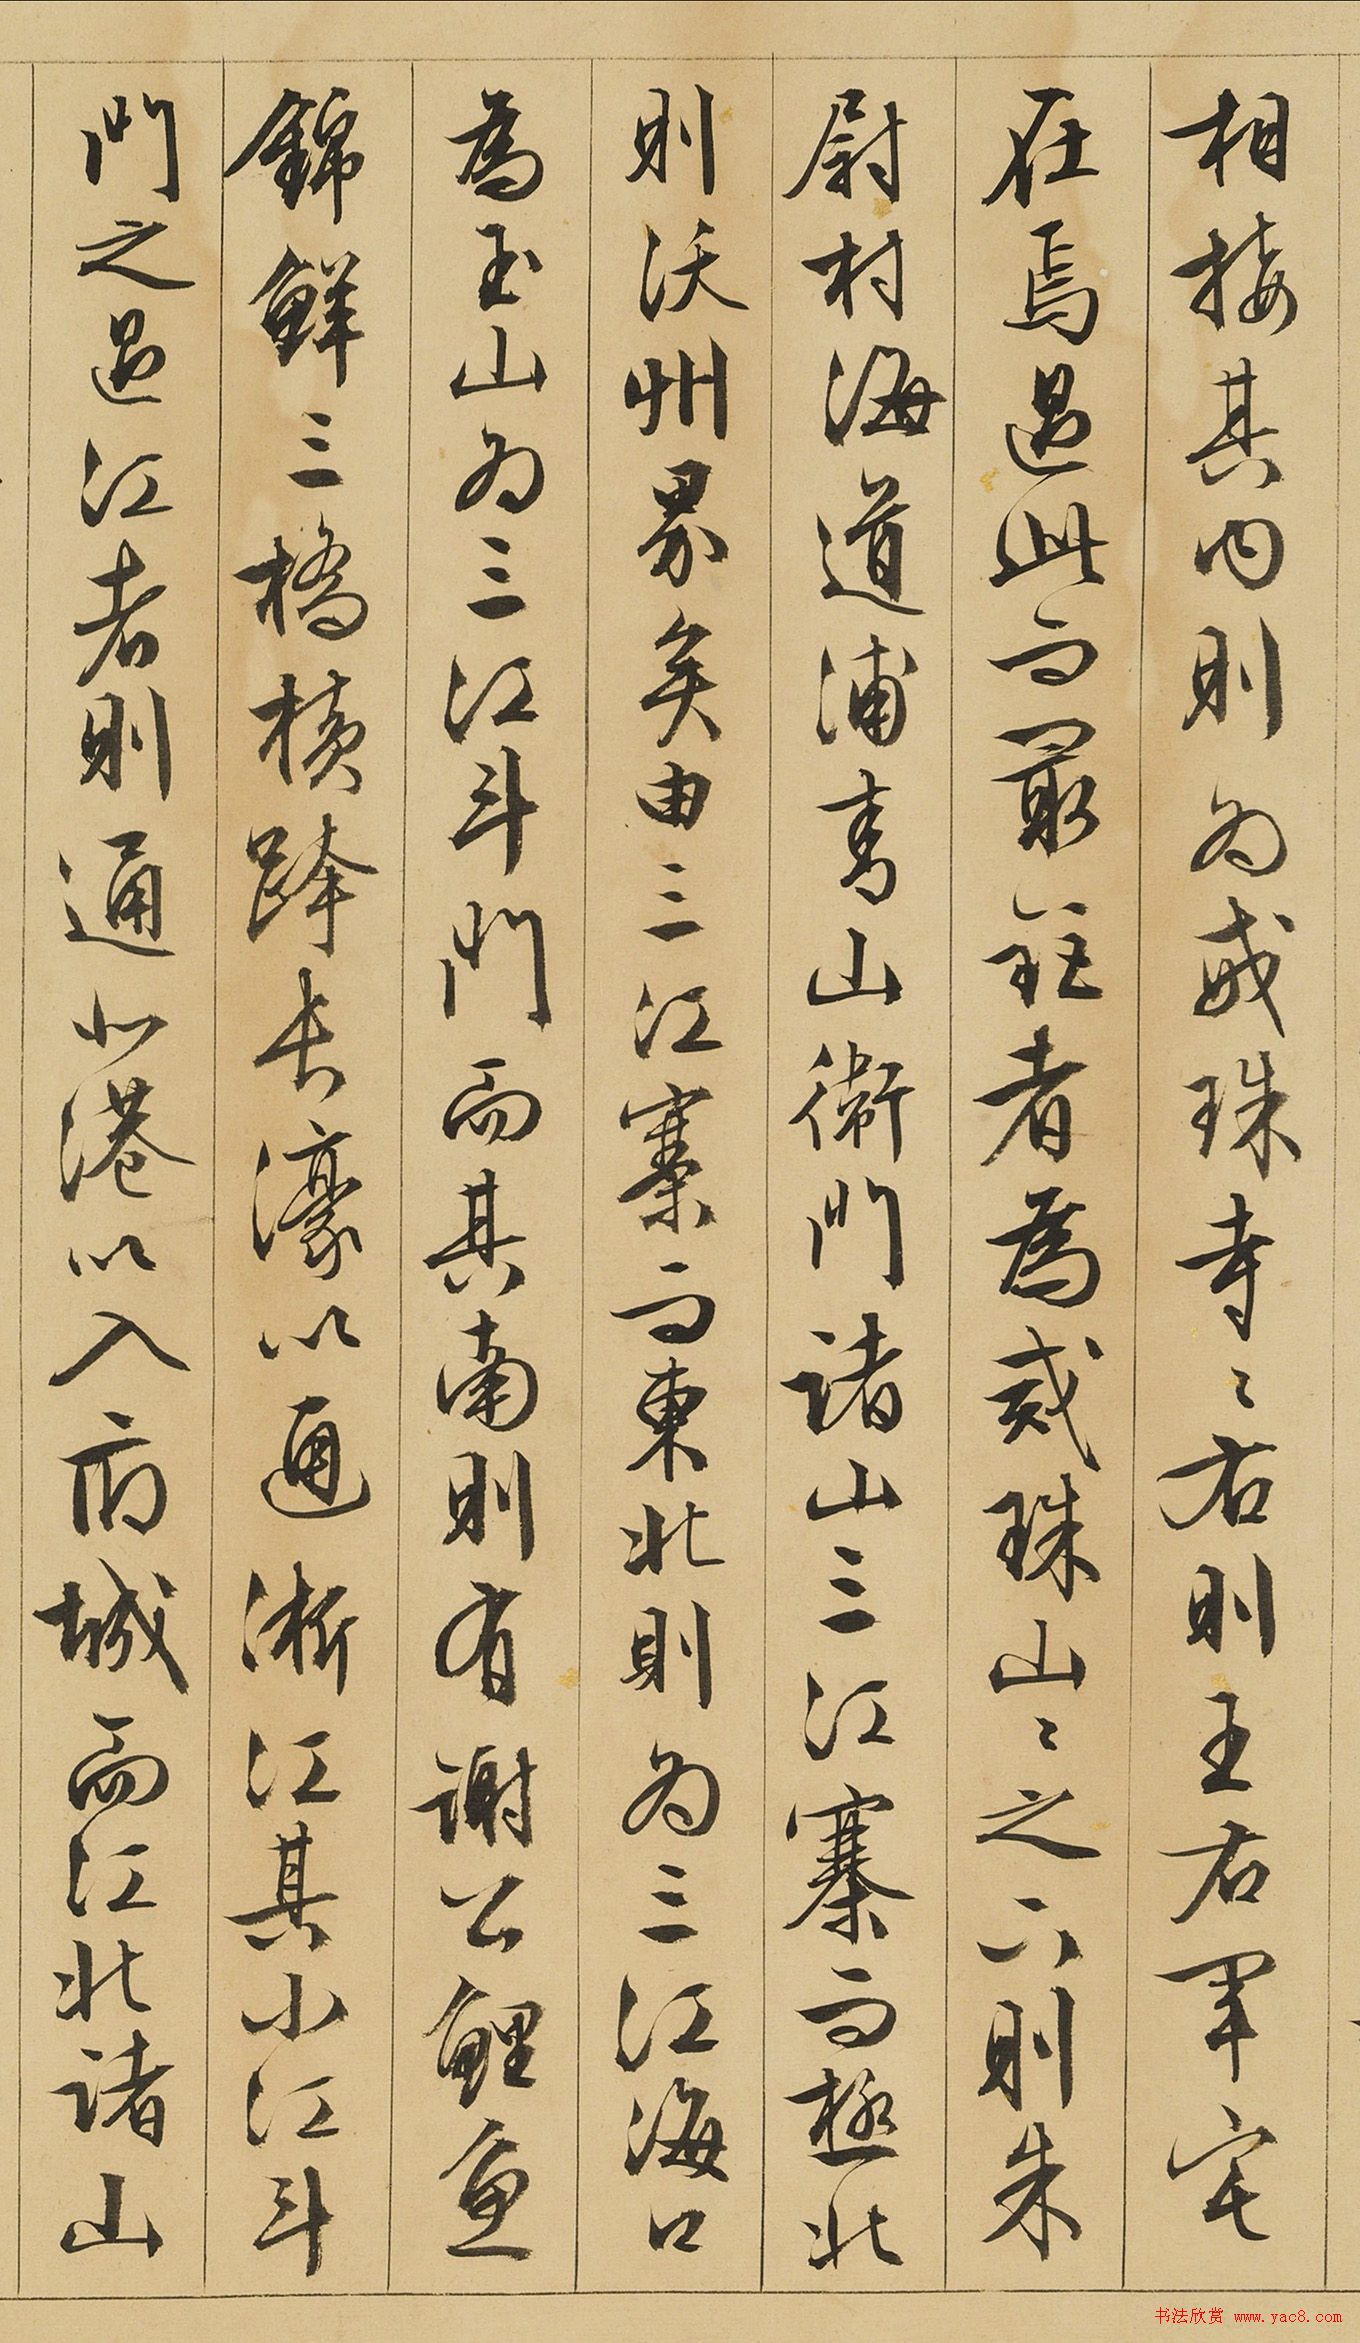 相接其内則为戒珠寺〻右則王右軍宅
在焉過此而最鉅者為戒珠山〻之下則朱
尉村海道浦青山衛門諸山三江寨而極北
則沃州界矣由三江寨而東北則为三江海口
為玉山为三江斗門而其南則有謝公鯉魚
錦鮮三橋横跨長濠以通浙江其小江斗
門之過江者則通小港以入府城而江北諸山
书法欣赏 www.yac8.com